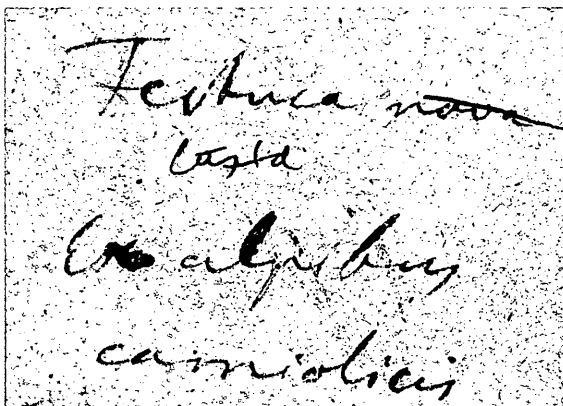 Festuca nova
laxa
Ex alpibus
carniolicis